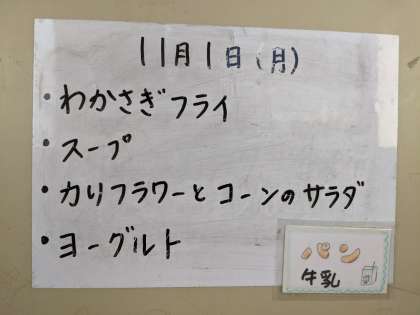 11月1日(月)
・わかさぎフライ
・スープ
・カリフラワーとコーンのサラダ
・ヨーグルト
パン
牛乳